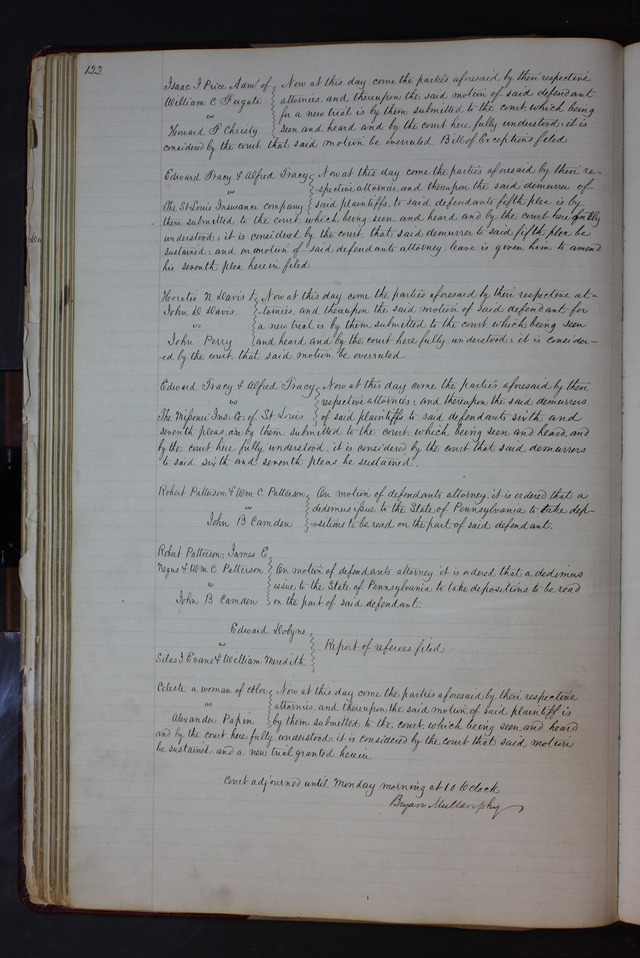 122
Isaac J Price Admr of Now at this day come the parties aforesaid by their respective
William C Fugate attornies, and thereupon the said motion of said defendant
vs for a new trial is by them submitted to the court which being
Howard F Christy seen and heard and by the court here fully understood; it is
considered by the court that said motion be overruled Bill of Exceptions filed
Edward Tracy & Alfred Tracy Now at this day come the parties aforesaid by their re-
vs -spective attornies, and thereupon the said demurrer of
The St Louis Insurance company said plaintiffs, to said defendants fifth plea is by
them submitted to the court which being seen and heard and by the court here fully
understood; it is considered by the court that said demurrer to said fifth plea be
sustained; and on motion of said defendants attorney, leave is given him to amend
his seventh plea herein filed
Horatio N Davis & Now at this day come the parties aforesaid by their respective at-
John D Davis -tornies, and thereupon the said motion of said defendant for
vs a new trial is by them submitted to the court which being seen
John Perry and heard and by the court here fully understood; it is consider-
ed by the court, that said motion be overruled.
Edward Tracy & Alfred Tracy Now at this day come the parties aforesaid by their
vs respective attornies; and thereupon the said demurrers
The Missouri Ins. Co: of St Louis of said plaintiffs to said defendants sixth and
seventh pleas, are by them submitted to the court, which being seen and heard, and
by the court here fully understood, it is considered by the court that said demurrers
to said sixth and seventh pleas be sustained.
Robert Patterson & Wm C Patterson On motion of defendants attorney, it is ordered that a
vs dedimus issue to the State of Pennsylvania to take dep-
John B Camden -ositions to be read on the part of said defendant.
Robert Patterson, James E
Negus & Wm C Patterson On motion of defendants attorney it is ordered that a dedimus
vs issue to the State of Pennsylvania to take depositions to be read
John B Camden on the part of said defendant.
Edward Dobyns
vs Report of referees filed
Silas J Evans & William Meredith
Celeste a woman of color Now at this day come the parties aforesaid by their respective
vs attornies, and thereupon the said motion of said plaintiff is
Alexander Papin by them submitted to the court, which being seen and heard
and by the court here fully understood; it is considered by the court that said motion
be sustained and a new trial granted herein
Court adjourned until Monday morning at 10 O'Clock
Bryan Mullanphy